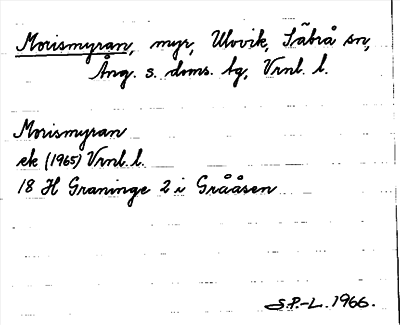 Morismyran, myr, Ulvvik, Säbrå sn,
Ång. s. doms. tg, Vrnl. l.
Morismyran
ek (1965) Vrnl. l.
18 H Graninge 2 i Grååsen
S.P.-L. 1966.